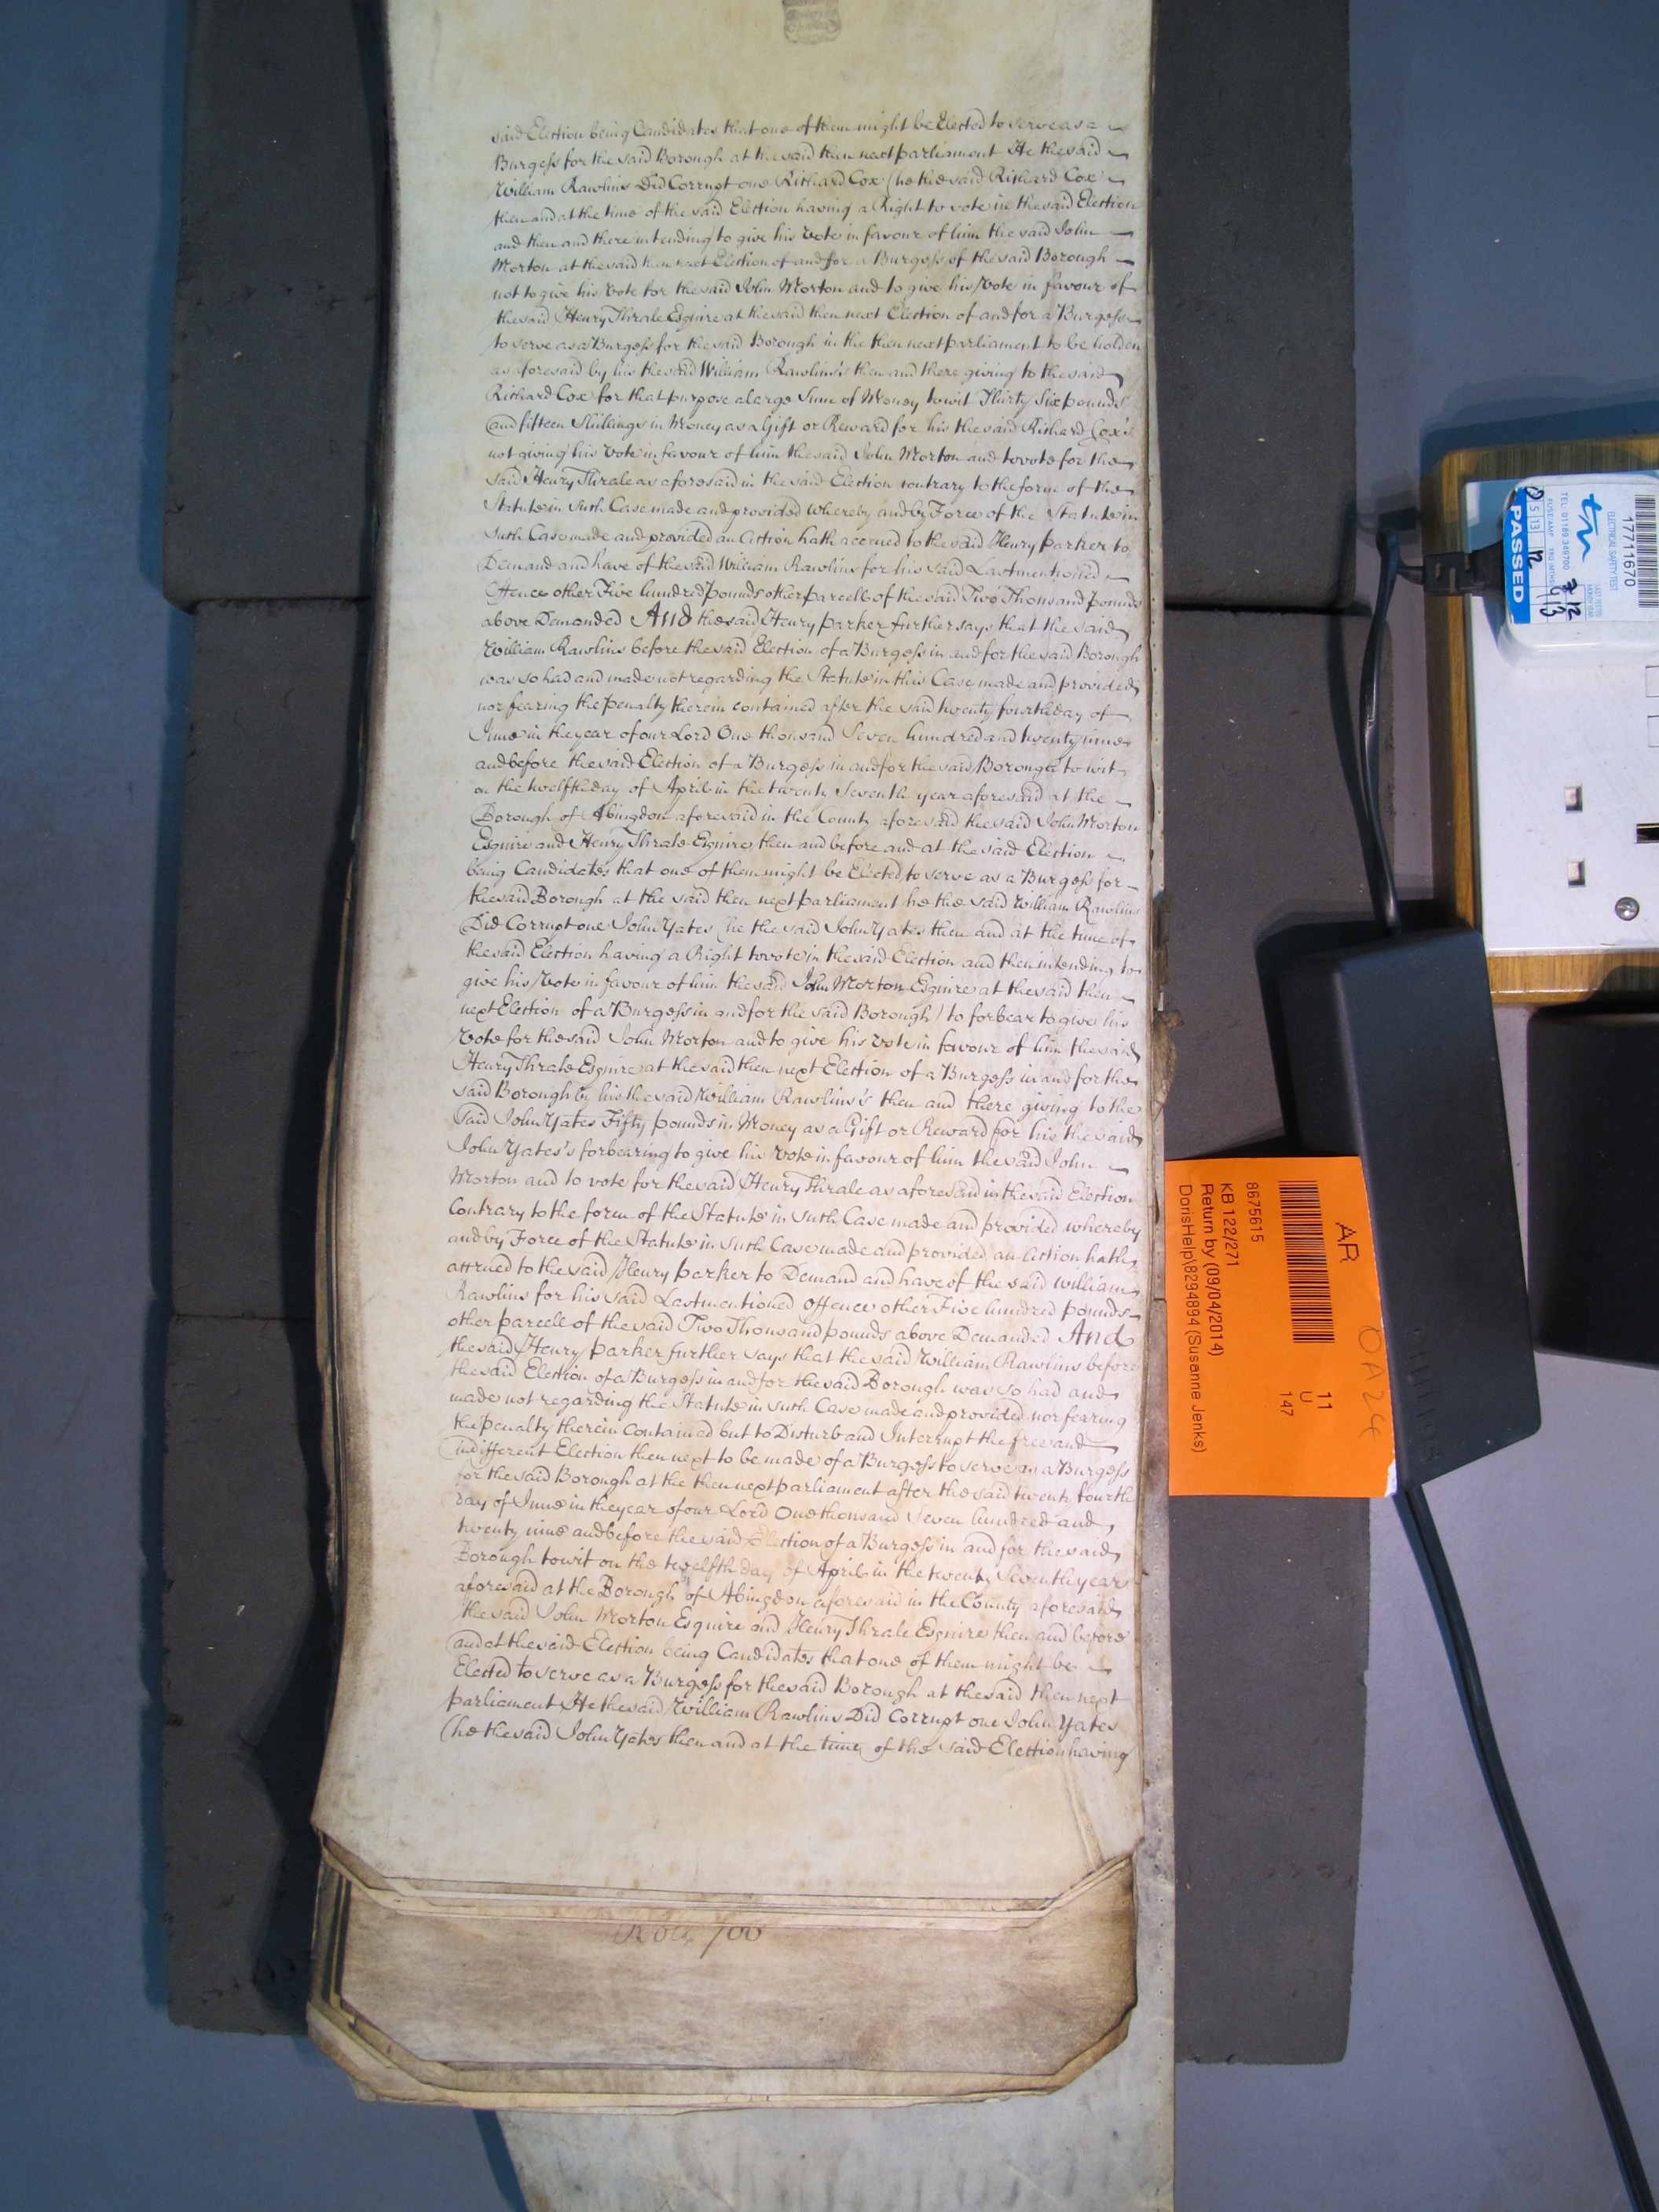 said Election being Candidates that one of them might be Elected to serve as a
Burgess for the said Borough at the said then next parliament He the said
William Rawlins Did Corrupt one Richard Cox (he the said Richard Cox
then and at the time of the said Election having a Right to vote in the said Election
and then and there intending to give his Vote in favour of him the said John
Morton at the said then next Election of and for a Burgess of the said Borough
not to give his Vote for the said John Morton and to give his Vote in favour of
the said Henry Thrale Esquire at the said then next Election of and for a Burgess
to serve as a Burgess for the said Borough in the then next parliament to be holden
as aforesaid by his the said William Rawlins's then and there giving to the said
Richard Cox for that purpose a large Sum of Money to wit Thirty Six pounds
and fifteen Shillings in Money as a Gift or Reward for his the said Richard Cox's
not giving his Vote in favour of him the said John Morton and to vote for the
said Henry Thrale as aforesaid in the said Election contrary to the form of the
Statute in such Case made and provided whereby and by Force of the Statute in
such Case made and provided an action hath accrued to the said Henry parker to
Demand and have of the said William Rawlins for his said Lastmentioned
Offence other Five hundred pounds other parcell of the said Two Thousand pounds
above Demanded And the said Henry parker further says that the said
William Rawlins before the said Election of a Burgess in and for the said Borough
was so had and made not regarding the Statute in this Case made and provided
nor fearing the penalty therein contained after the said twenty fourth day of
June in the year of our Lord One thousand Seven hundred and twenty nine
and before the said Election of a Burgess in and for the said Borough to wit
on the twelfth day of April in the twenty Seventh year aforesaid at the
Borough of Abingdon aforesaid in the County aforesaid the said John Morton
Esquire and Henry Thrale Esquire then and before and at the said Election
being Candidates that one of them might be Elected to serve as a Burgess for
the said Borough at the said then next parliament he the said William Rawlins
Did Corrupt one John Yates (he the said John Yates then and at the time of
the said Election having a Right to vote in the said Election and then intending to
give his Vote in favour of him the said John Morton Esquire at the said then
next Election of a Burgess in and for the said Borough) to forbear to give his
Vote for the said John Morton and to give his Vote in favour of him the said
Henry Thrale Esquire at the said then next Election of a Burgess in and for the
said Borough by his the said William Rawlins's then and there giving to the
said John Yates Fifty pounds in Money as a Gift or Reward for his the said
John Yates's forbearing to give his Vote in favour of him the said John
Morton and to vote for the said Henry Thrale as aforesaid in the said Election
Contrary to the form of the Statute in such Case made and provided whereby
and by Force of the Statute in such Case made and provided an action hath
accrued to the said Henry parker to Demand and have of the said William
Rawlins for his said Lastmentioned offence other Five hundred pounds
other parcell of the said Two Thousand pounds above Demanded And
the said Henry parker further says that the said William Rawlins before
the said Election of a Burgess in and for the said Borough was so had and
made not regarding the Statute in such Case made and provided nor fearing
the penalty therein Contained but to Disturb and Interrupt the free and
indifferent Election then next to be made of a Burgess to serve as a Burgess
for the said Borough at the then next parliament after the said twenty fourth
day of June in the year of our Lord One thousand Seven hundred and
twenty nine and before the said Election of a Burgess in and for the said
Borough to wit on the twelfth day of April in the twenty Seventh year
aforesaid at the Borough of Abingdon aforesaid in the County aforesaid
the said John Morton Esquire and Henry Thrale Esquire then and before
and at the said Election being Candidates that one of them might be
Elected to serve as a Burgess for the said Borough at the said then next
parliament He the said William Rawlins Did Corrupt one John Yates
(he the said John Yates then and at the time of the said Election having
Roll 700
AR
8675615
KB 122/271
Return by (09/04/2014)
DorisHelp\8294894 (Susanne Jenks)
11
U
147
OA24
PHILIPS
17711670
ELECTRICAL SAFETY TEST
PASSED